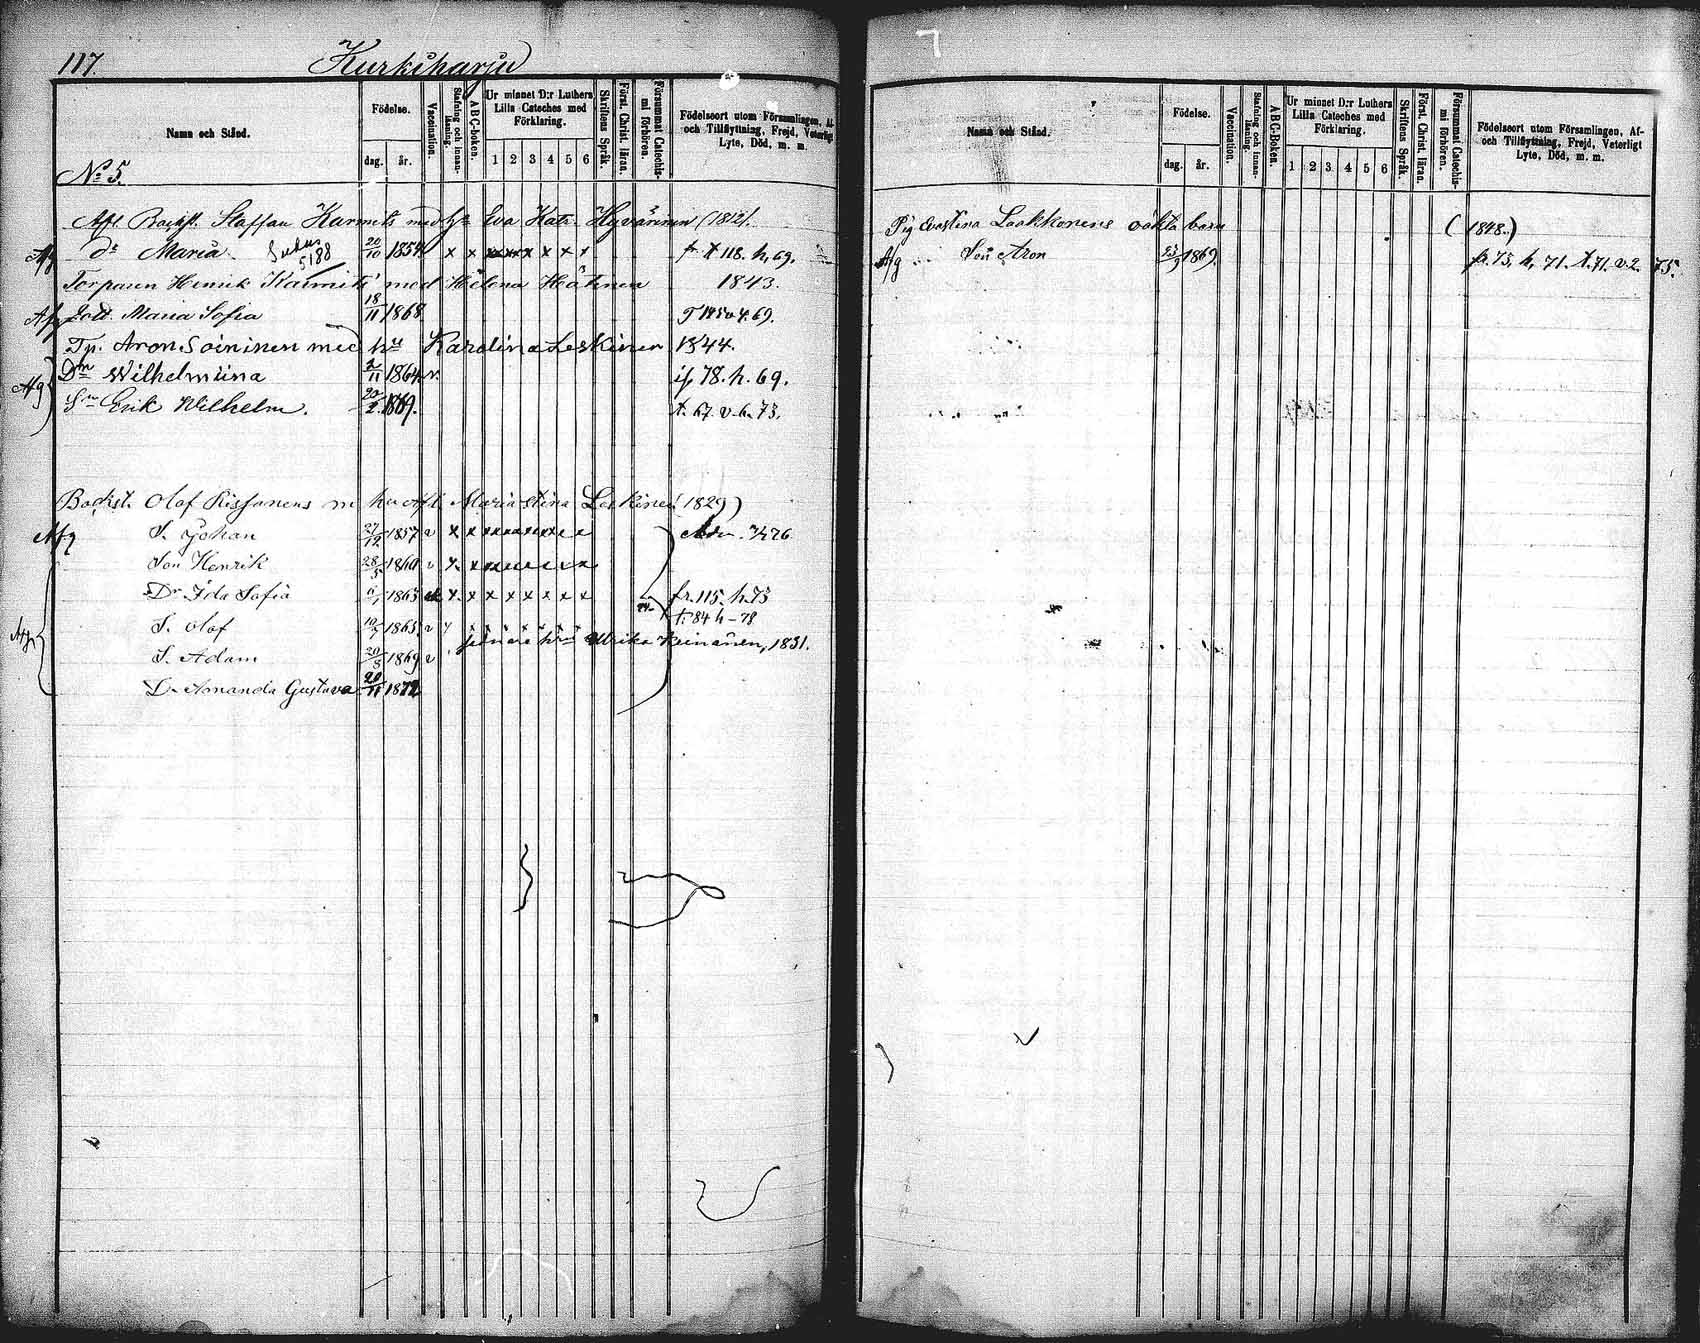 117. Kurkiharju
Namn och Stånd.
Födelse.
dag. år.
Vaccination.
Stafning och innanläsning.
ABC-boken.
Ur minnet D:r Luthers Lilla Cateches med Förklaring.
1 2 3 4 5 6
Skriftens Språk.
Först. Christ. läran.
Försummat Catechismi förhören.
Födelseort utom Församlingen, Af- och Tillflyttning, Frejd, Veterligt Lyte, Död, m. m.
No 5.
Afl. Backst. Staffan Karmits med h:u Eva Katr. Hyvärinen (1812).
Afg Dr Maria 5188 20/10 1854 x x x x x x x x t. 118. h. 69.
Torparen Henrik Karmits med Helena Hätinen 1843.
Afg Dott. Maria Sofia 18/11 1868 69.
Tp. Aron Soininen med hu Karolina Leskinen 1844.
Afg Dr Wilhelmiina 2/11 1864 v. if. 78. h. 69.
Sn Erik Wilhelm. 20/2 1869. t. 67. v. h. 73.
Backst. Olof Rissanens m hu Afl. Maria Stina Leskinen (1829)
Afg S. Johan 27/12 1857 v x x x x x x x x 76
Son Henrik 28/5 1860 v x x x x x x x x
Dr Ida Sofia 6/1 1863 x x x x x x x x fr. 115. h. 73
t. 84 h - 78
Afg S. Olof 10/7 1865 v
senare hru Ulrika Reinänen, 1831.
S. Adam 20/3 1869 v
D. Amanda Gustava 20/11 1872
Namn och Stånd.
Födelse.
dag. år.
Vaccination.
Stafning och innanläsning.
ABC-Boken.
Ur minnet D:r Luthers Lilla Cateches med Förklaring.
1 2 3 4 5 6
Skriftens Språk.
Först. Christ. läran.
Försummat Catechismi förhören.
Födelseort utom Församlingen, Af- och Tillflyttning, Frejd, Veterligt Lyte, Död, m. m.
Pig Evastina Laakkonens oäkta barn (1848.)
Afg Son Aron 23/9 1869. fr. 75, h, 71. t. 71. v. 2. 75.